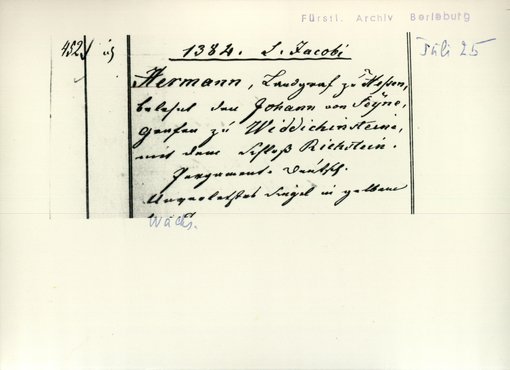 Fürstl. Archiv Berleburg
452. 1384. S. Jacobi Juli 25
Hermann, Landgraf zu Hessen,
belehnt den Johann von Seyne,
Grafen zu Widdichinsteine,
mit dem Schloß Richstein.
Pergament. Deutsch.
Unverletztes Siegel in gelbem
Wachs.